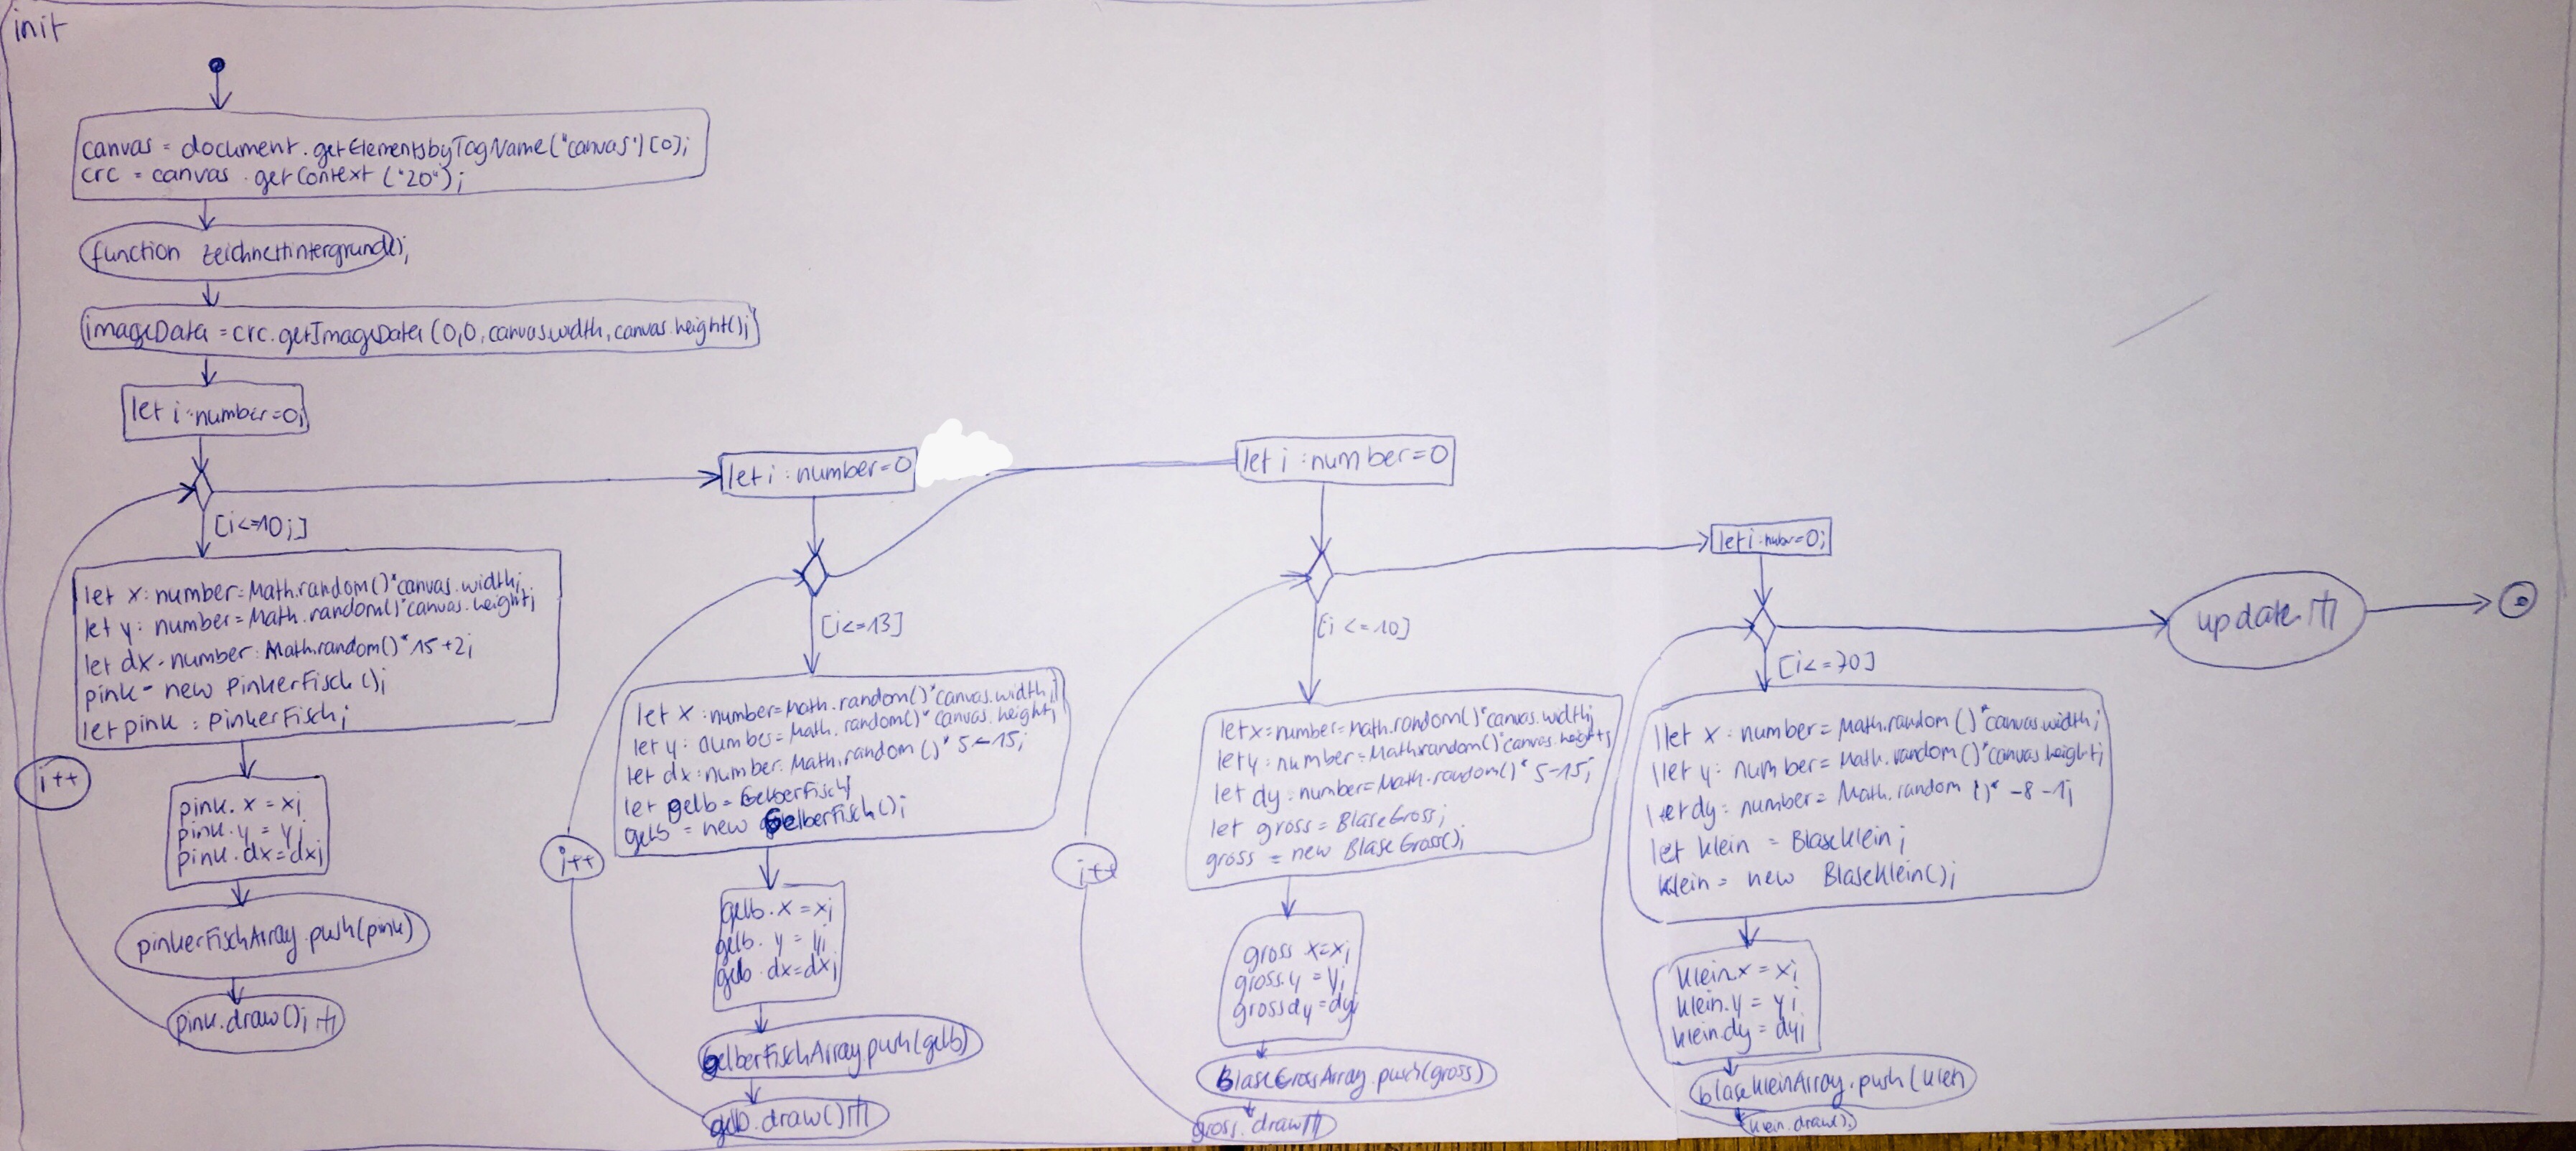 init
canvas = document.getElementsbyTagName("canvas")[0];
crc = canvas.getContext("2D");
function zeichneHintergrund();
imageData = crc.getImageData(0,0,canvas.width,canvas.height();
let i:number=0;
[i<=10;]
let x: number=Math.random()*canvas.width;
let y: number=Math.random()*canvas.height;
let dx-number:Math.random()*15+2;
pink- new PinkerFisch();
let pink : PinkerFisch;
i++
pink.x = x;
pink.y = y;
pink.dx=dx;
pinkerFischArray.push(pink)
pink.draw();
let i:number=0
[i<=13]
let x:number=Math.random()*canvas.width;
let y: number=Math.random()*canvas.height;
let dx:number:Math.random()*5-15;
let gelb=GelberFisch;
gelb = new GelberFisch();
i++
gelb.x = x;
gelb.y = y;
gelb.dx=dx;
gelberFischArray.push(gelb)
gelb.draw()
let i:number=0
[i<=10]
let x:number=Math.random()*canvas.width;
let y:number=Math.random()*canvas.height;
let dy:number=Math.random()*5-15;
let gross = BlaseGross;
gross = new BlaseGross();
i++
gross x=x;
gross.y = y;
gross dy=dy;
BlaseGrossArray.push(gross)
gross.draw
let i:number=0;
[i<=70]
let x: number=Math.random()*canvas.width;
let y: number=Math.random()*canvas.height;
let dy: number= Math.random()* -8-1;
let klein = BlaseKlein;
klein= new BlaseKlein();
klein.x = x;
klein.y = y;
klein.dy = dy;
blasekleinArray.push(klein
klein.draw();
update